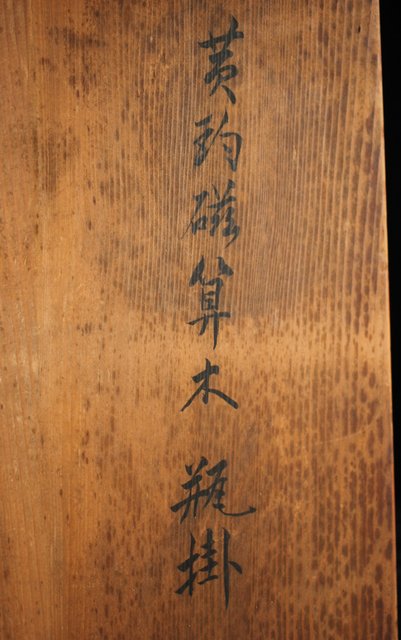 黄均磁算木瓶掛